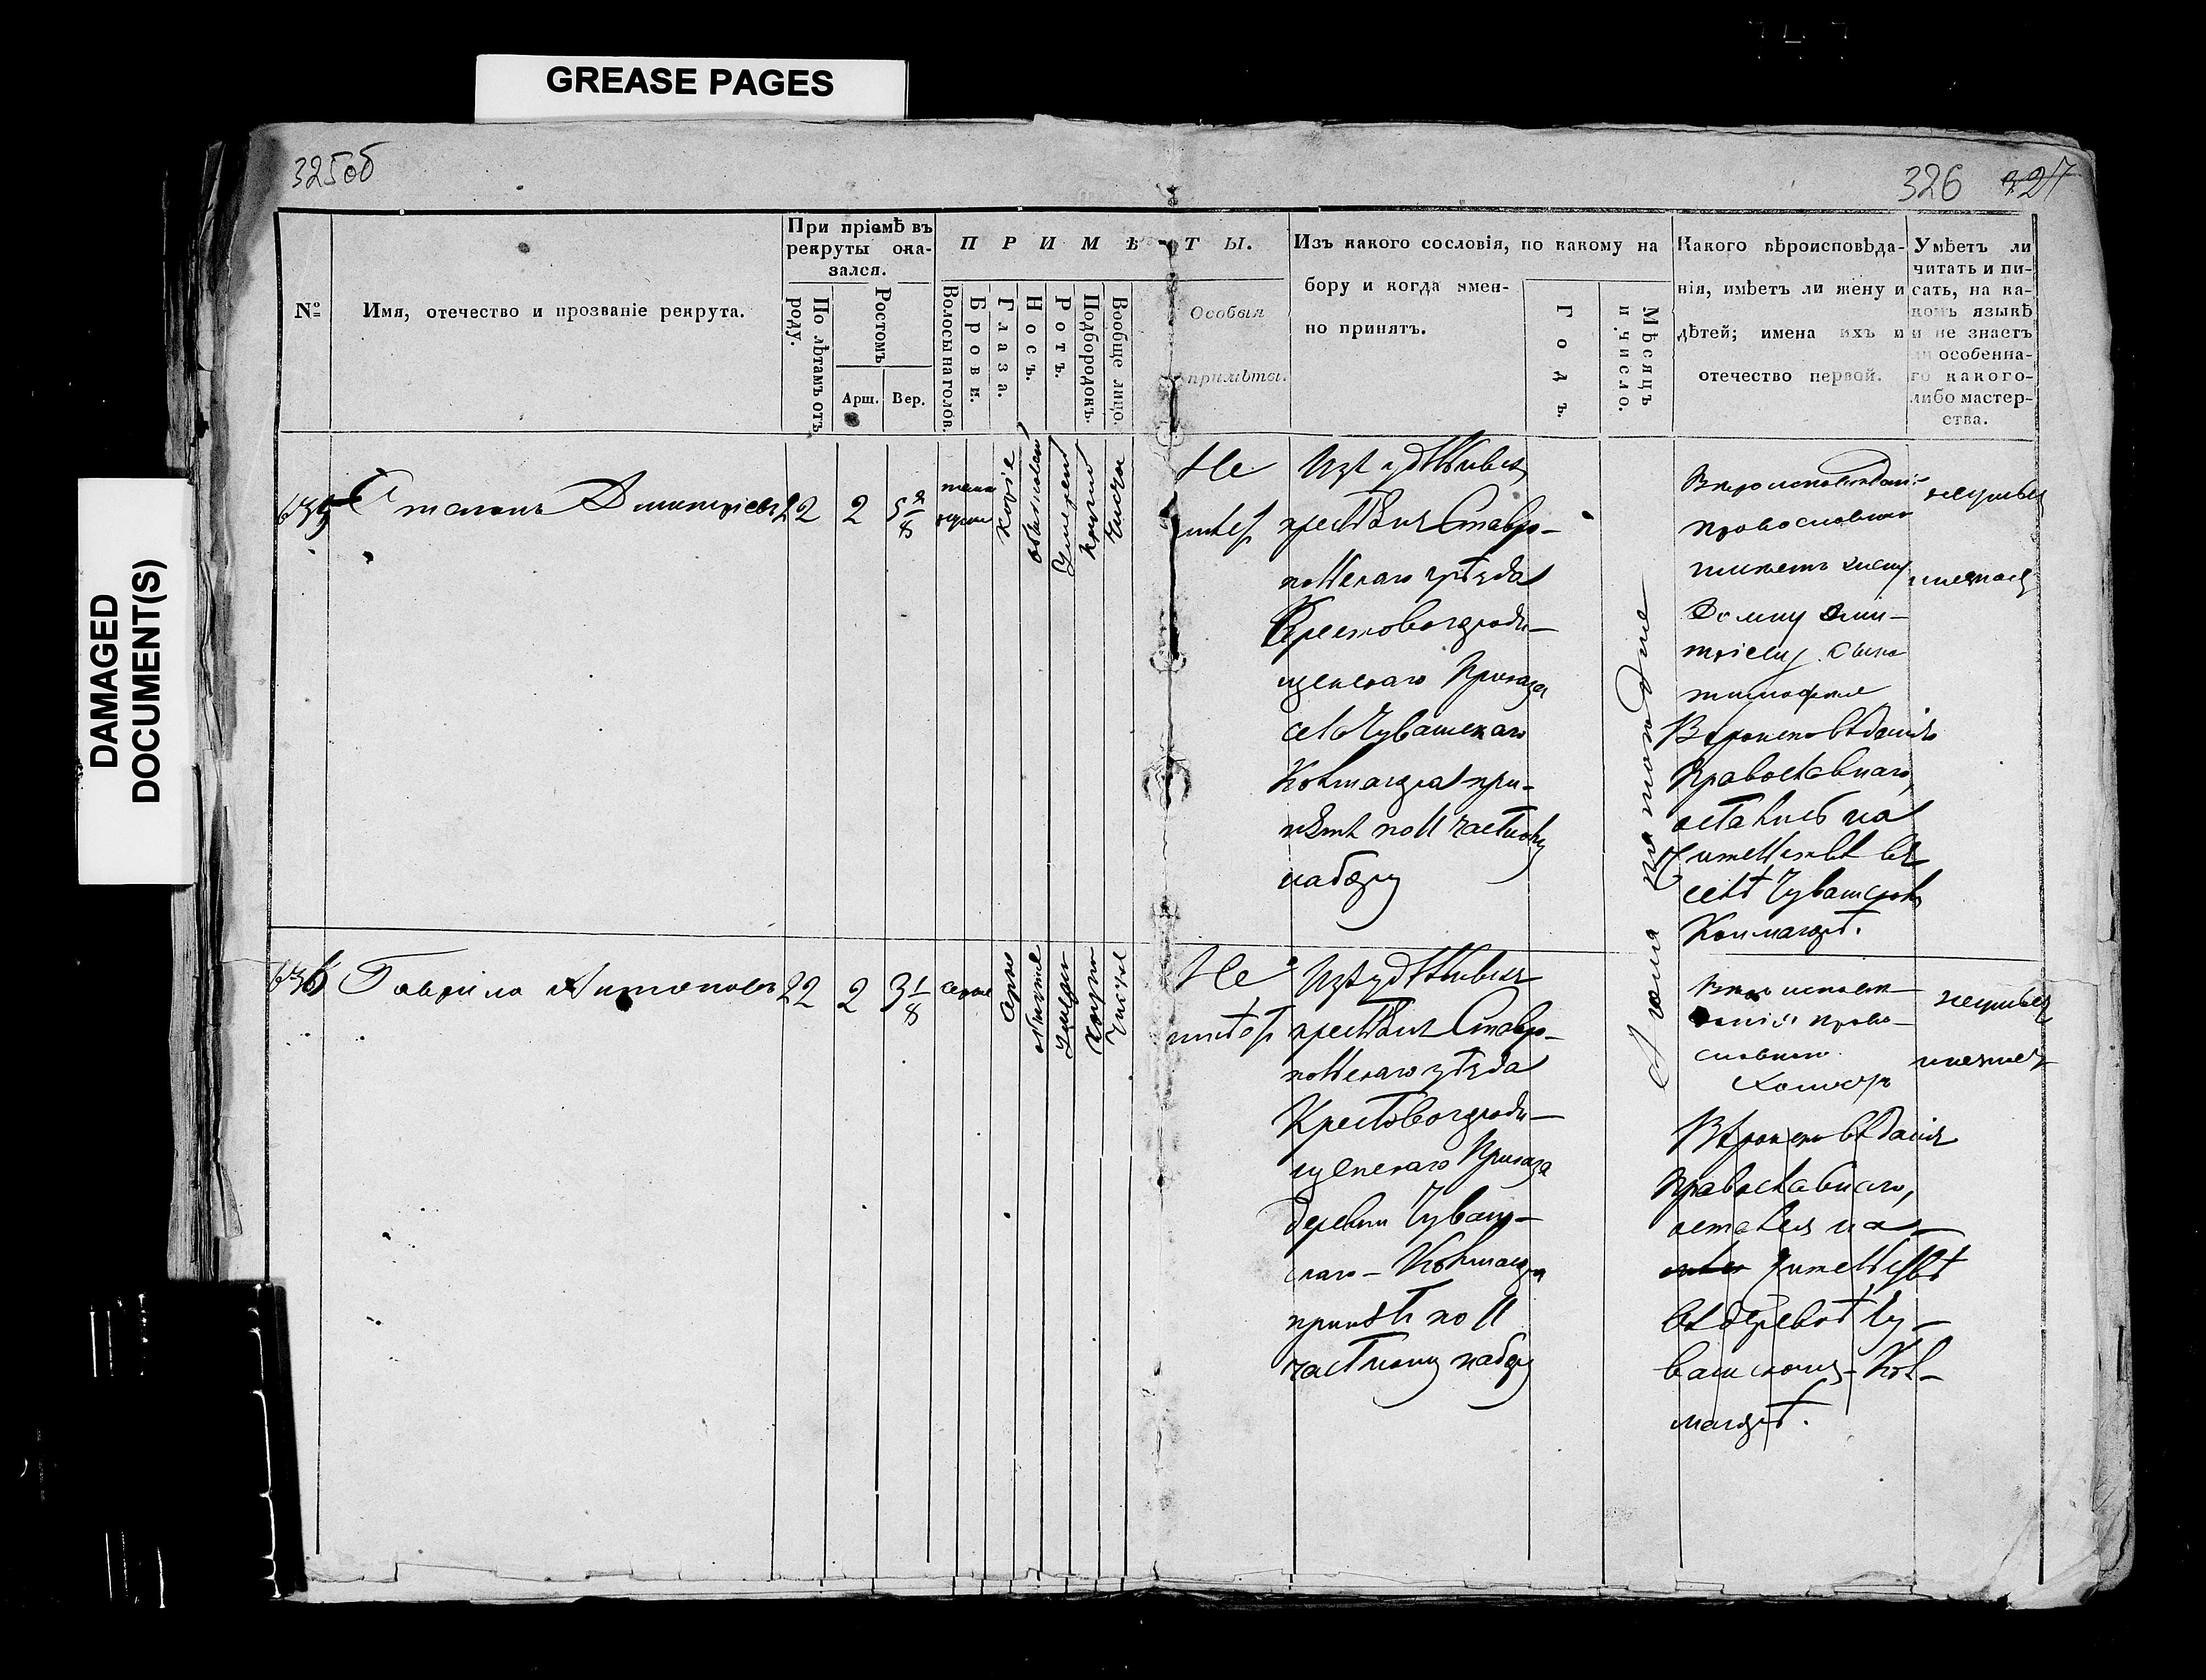 GREASE PAGES
DAMAGED
DOCUMENT(S)
325об
326 327
№
Имя, отечество и прозваніе рекрута.
При пріемѣ въ
рекруты ока-
зался.
По лѣтамъ отъ
роду.
Ростомъ
Арш.
Вер.
ПРИМѢТЫ.
Волосы на голов.
Брови.
Глаза.
Носъ.
Ротъ.
Подбородокъ.
Вообще лицо.
Особыя
примѣты.
Изъ какого сословія, по какому на
бору и когда имен-
но принятъ.
Годъ.
Мѣсяцъ
и число.
Какого вѣроисповѣда-
нія, имѣетъ ли жену и
дѣтей; имена ихъ и
отечество первой.
Умѣетъ ли
читать и пи-
сать, на ка-
комъ языкѣ
и не знаетъ
ли особенна-
го какого-
либо мастер-
ства.
635
Степанъ Дмитріевъ
22
2
5 2/8
темно
русые
каріе
обыкновен
умерен
кругл
чисто
Не
имѣет
Изъ удѣльныхъ
крестьянъ Ставро-
польскаго уѣзда
Крестовогороди-
щенскаго Приказа
села Чувашскаго
Калмаюра при-
нятъ по II частному
набору
тогоже
православнаго
имѣетъ жену
Домну Дми-
тріеву сына
тимофея
Вѣроисповѣданія
Православнаго,
остались на
жительствѣ въ
селѣ Чувашскомъ
636
Гаврило Антоновъ
22
2
3 1/8
серые
умерен
кругло
чистое
Не
имѣет
Изъ удѣльныхъ
крестьянъ Ставро-
польскаго уѣзда
Крестовогороди-
щенскаго Приказа
деревни Чуваш-
скаго-Калмаюра
принятъ по II
частному набору
православнаго
Холостъ
Вѣроисповѣданія
Православнаго,
остался на
жительствѣ
въ деревнѣ Чу-
вашскомъ-Кал-
маюрѣ.